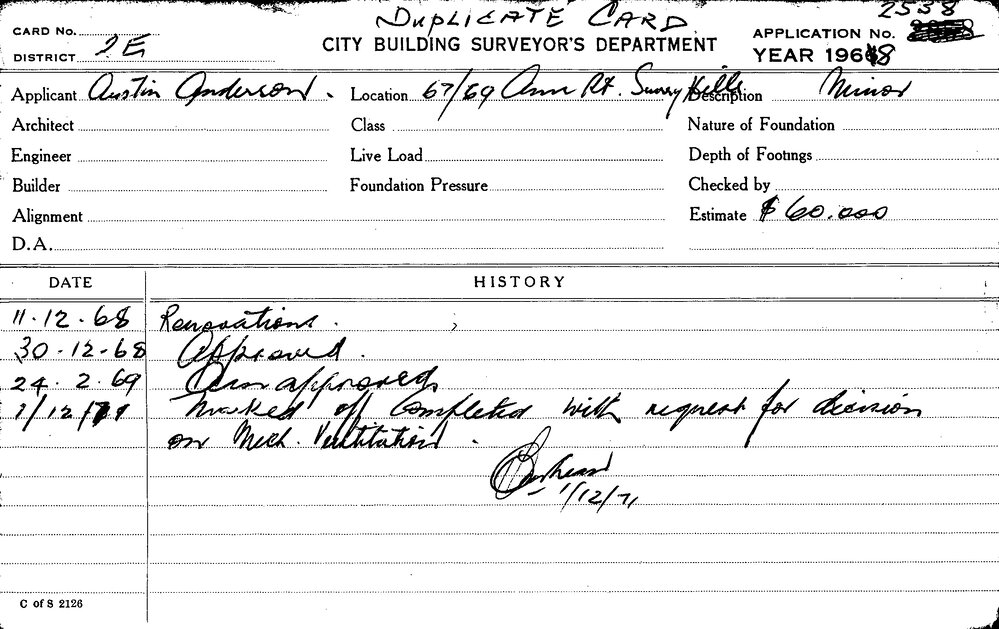 DUPLICATE CARD
CARD No.
CITY BUILDING SURVEYOR'S DEPARTMENT
2538
APPLICATION No.
DISTRICT 2E
YEAR 1968
Applicant Austin Anderson. Location 67/69 Ann St. Surry Hills Description Minor
Architect Class Nature of Foundation
Engineer Live Load Depth of Footings
Builder Foundation Pressure Checked by
Alignment Estimate $60.000
D.A.
DATE HISTORY
11.12.68 Renovations.
30.12.68 Approved.
24.2.69 approved
1/12/71 Marked off Completed with request for decision
on Mech. Ventilation.
1/12/71
C of S 2126